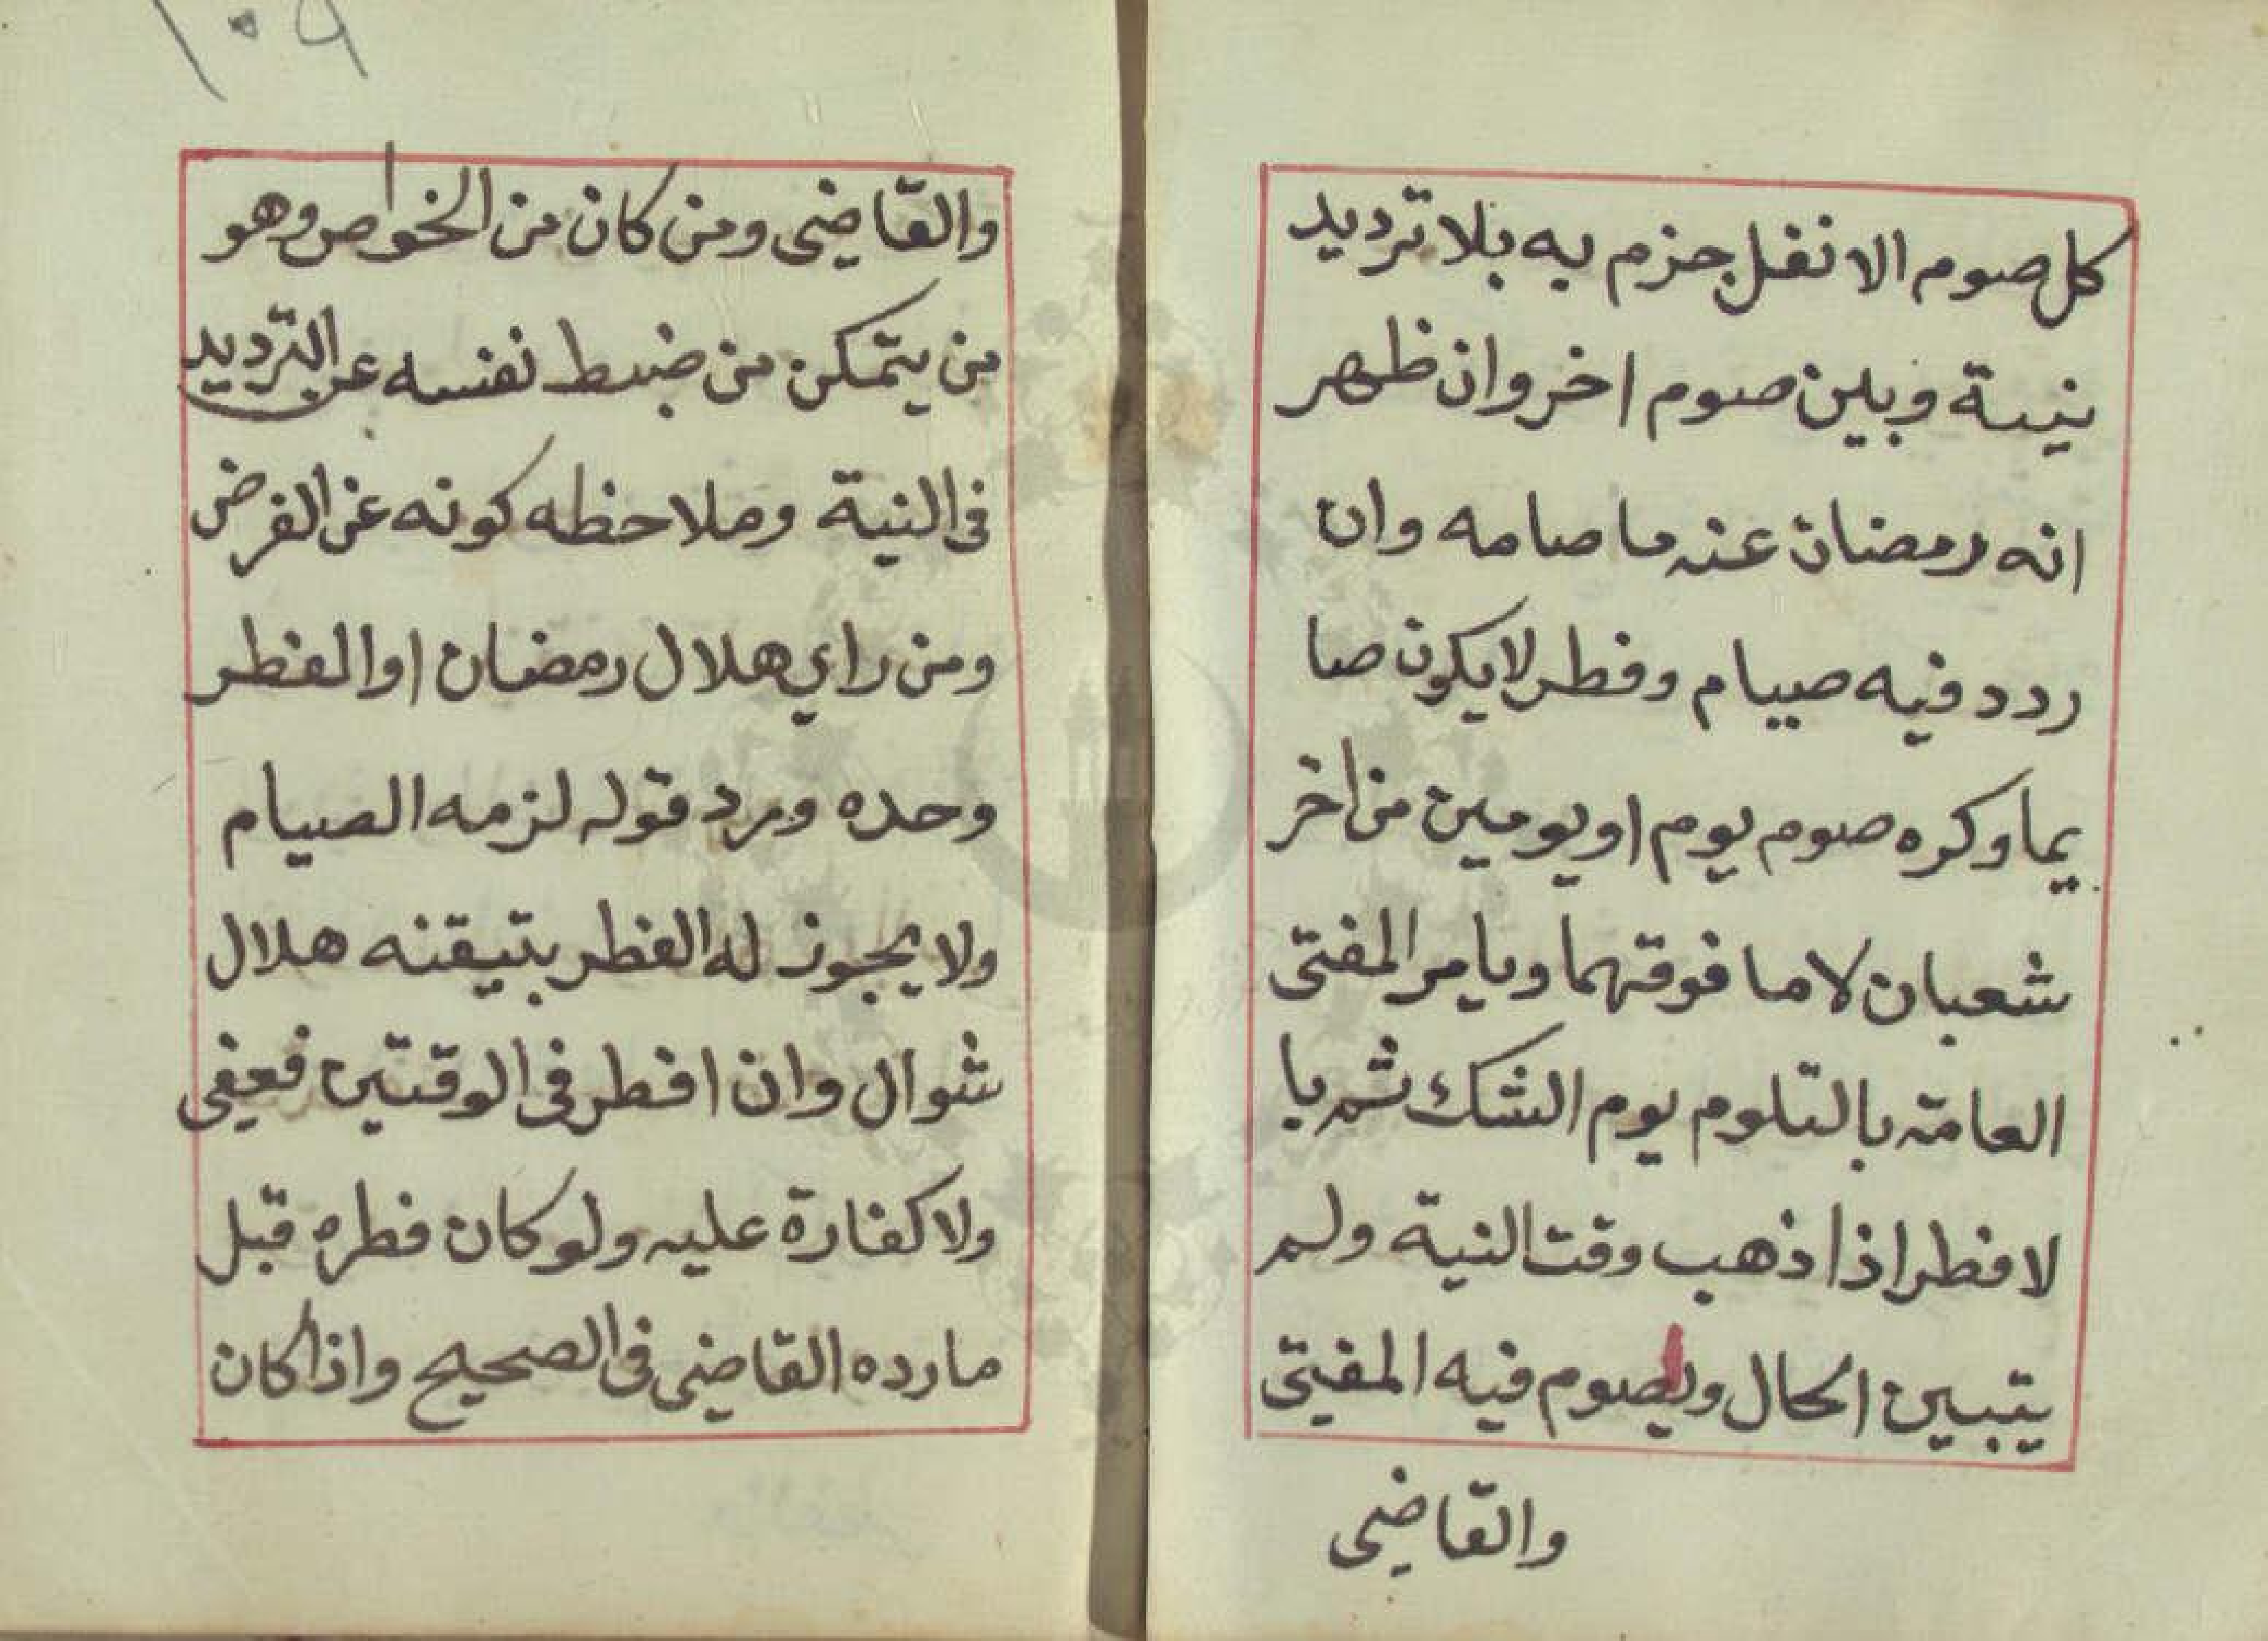 كل صوم الا نفل جزم به بلا ترديد
نيبة وبين صوم اخر وان ظهر
انه رمضان عنه ما صامه وان
ردد فيه صيام وفطر لا يكون صا
يما وكره صوم يوم او يومين من اخر
شعبان لا ما فوقهما ويامر المفتى
العامة بالتلوم يوم الشك ثم با
لا فطر اذا ذهب وقت النية ولم
يتبين الحال ويصوم فيه المفيتى
والقاضى
١٠٩
والقاضى ومن كان من الخواص وهو
من يتمكن من ضبط نفسه عن الترديد
فى النية وملاحظه كونه عن الفرض
ومن راي هلال رمضان او الفطر
وحده ورد قوله لزمه الصيام
ولا يجوز له الفطر بتيقنه هلال
شوال وان افطر فى الوقتين فعفى
ولا كفارة عليه ولو كان فطره قبل
مارده القاضى فى الصحيح واذا كان